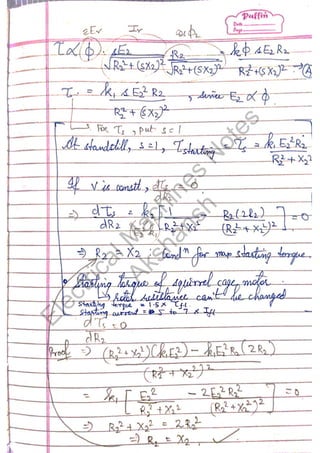 Puffin
Date
Page
sEr Ir cosφ2
τ ∝ φ · sE2 / √(R2² + (sX2)²) · R2 / √(R2² + (sX2)²) = kφ sE2R2 / (R2² + (sX2)²) → (A)
τ = k1 s E2² R2 / (R2² + (sX2)²) , since E2 ∝ φ
→ For Ts, put s = 1
At standstill, s = 1, Tstarting Ts = k1 E2² R2 / (R2² + X2²)
If V is constt, dTs / dR2 = 0
⇒ dTs / dR2 = k1 [ 1 / (R2² + X2²) - R2(2R2) / (R2² + X2²)² ] = 0
⇒ R2 = X2 condⁿ for max starting torque.
• Starting torque of squirrel cage motor.
→ rotor resistance can't be changed
Starting torque = 1.5 x Tfl
Starting current = 5 to 7 x Ifl
dTs / dR2 = 0
Proof ⇒ (R2² + X2²)(k1E2²) - k1E2²R2(2R2) / (R2² + X2²)²
= k1 [ E2² / (R2² + X2²) - 2E2²R2² / (R2² + X2²)² ] = 0
⇒ R2² + X2² = 2R2²
⇒ R2 = X2 ✓
Electrical Machines Notes
Akshansh